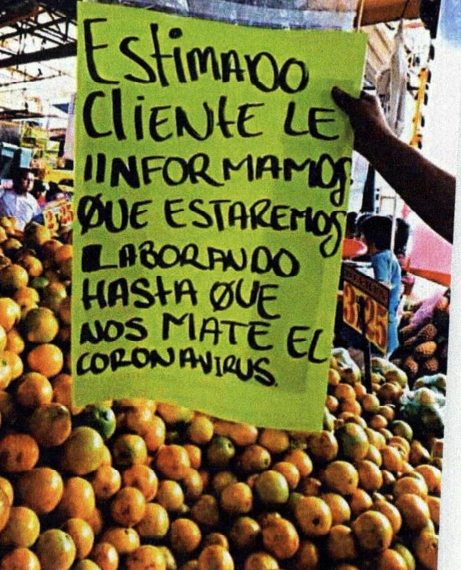 Estimado
Cliente le
iinformamos
que estaremos
laborando
hasta que
nos mate el
coronavirus.
3 25